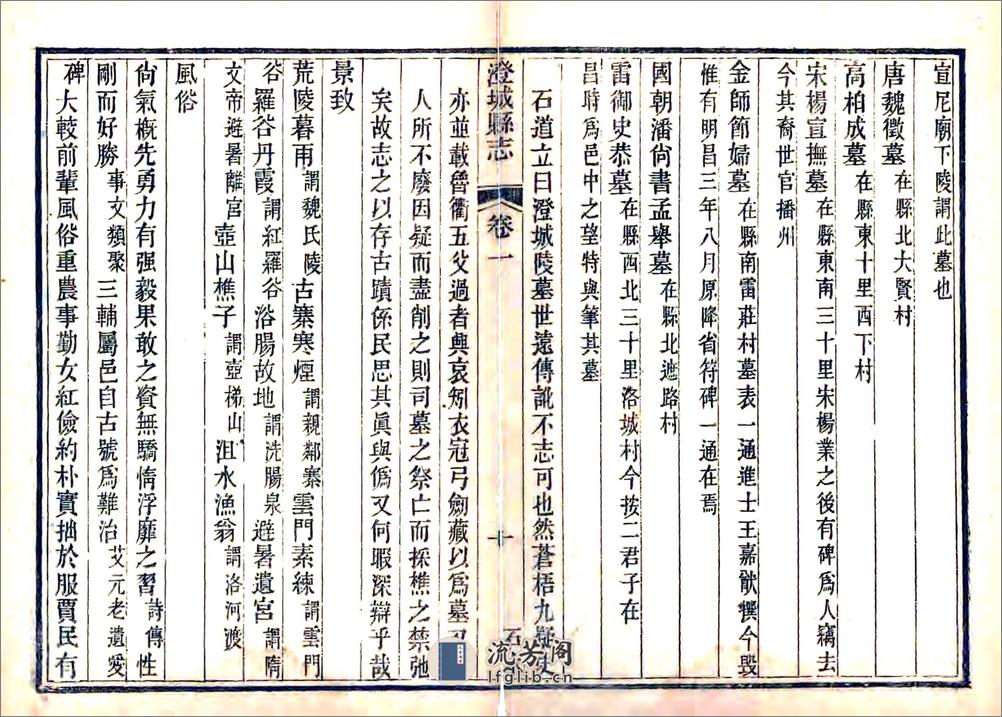 宣尼廟下陵謂此墓也
唐魏徵墓在縣北大賢村
高柏成墓在縣東十里西下村
宋楊宣撫墓在縣東南三十里宋楊業之後有碑爲人竊去
今其裔世官播州
金師節婦墓在縣南雷莊村墓表一通進士王嘉猷撰今毁
惟有明昌三年八月原降省符碑一通在焉
國朝潘尚書孟舉墓在縣北遮路村
雷御史恭墓在縣西北三十里洛城村今按二君子在
昌時爲邑中之望特與筆其墓
石道立曰澄城陵墓世遠傳訛不志可也然蒼梧九疑史
澄城縣志
卷一
十
石
亦並載魯衢五父過者興哀矧衣冠弓劍藏以爲墓
人所不廢因疑而盡削之則司墓之祭亡而採樵之禁弛
矣故志之以存古蹟係民思其眞與僞又何暇深辯乎哉
景致
荒陵暮雨謂魏氏陵古寨寒煙謂親鄰寨雲門素練謂雲門
谷羅谷丹霞謂紅羅谷浴腸故地謂洗腸泉避暑遺宮謂隋
文帝避暑離宮壺山樵子謂壺梯山沮水漁翁謂洛河渡
風俗
尚氣概先勇力有强毅果敢之資無驕惰浮靡之習詩傳性
剛而好勝事文類聚三輔屬邑自古號爲難治艾元老遺愛
碑大較前輩風俗重農事勤女紅儉約朴實拙於服賈民有
流芳閣
lfglib.cn